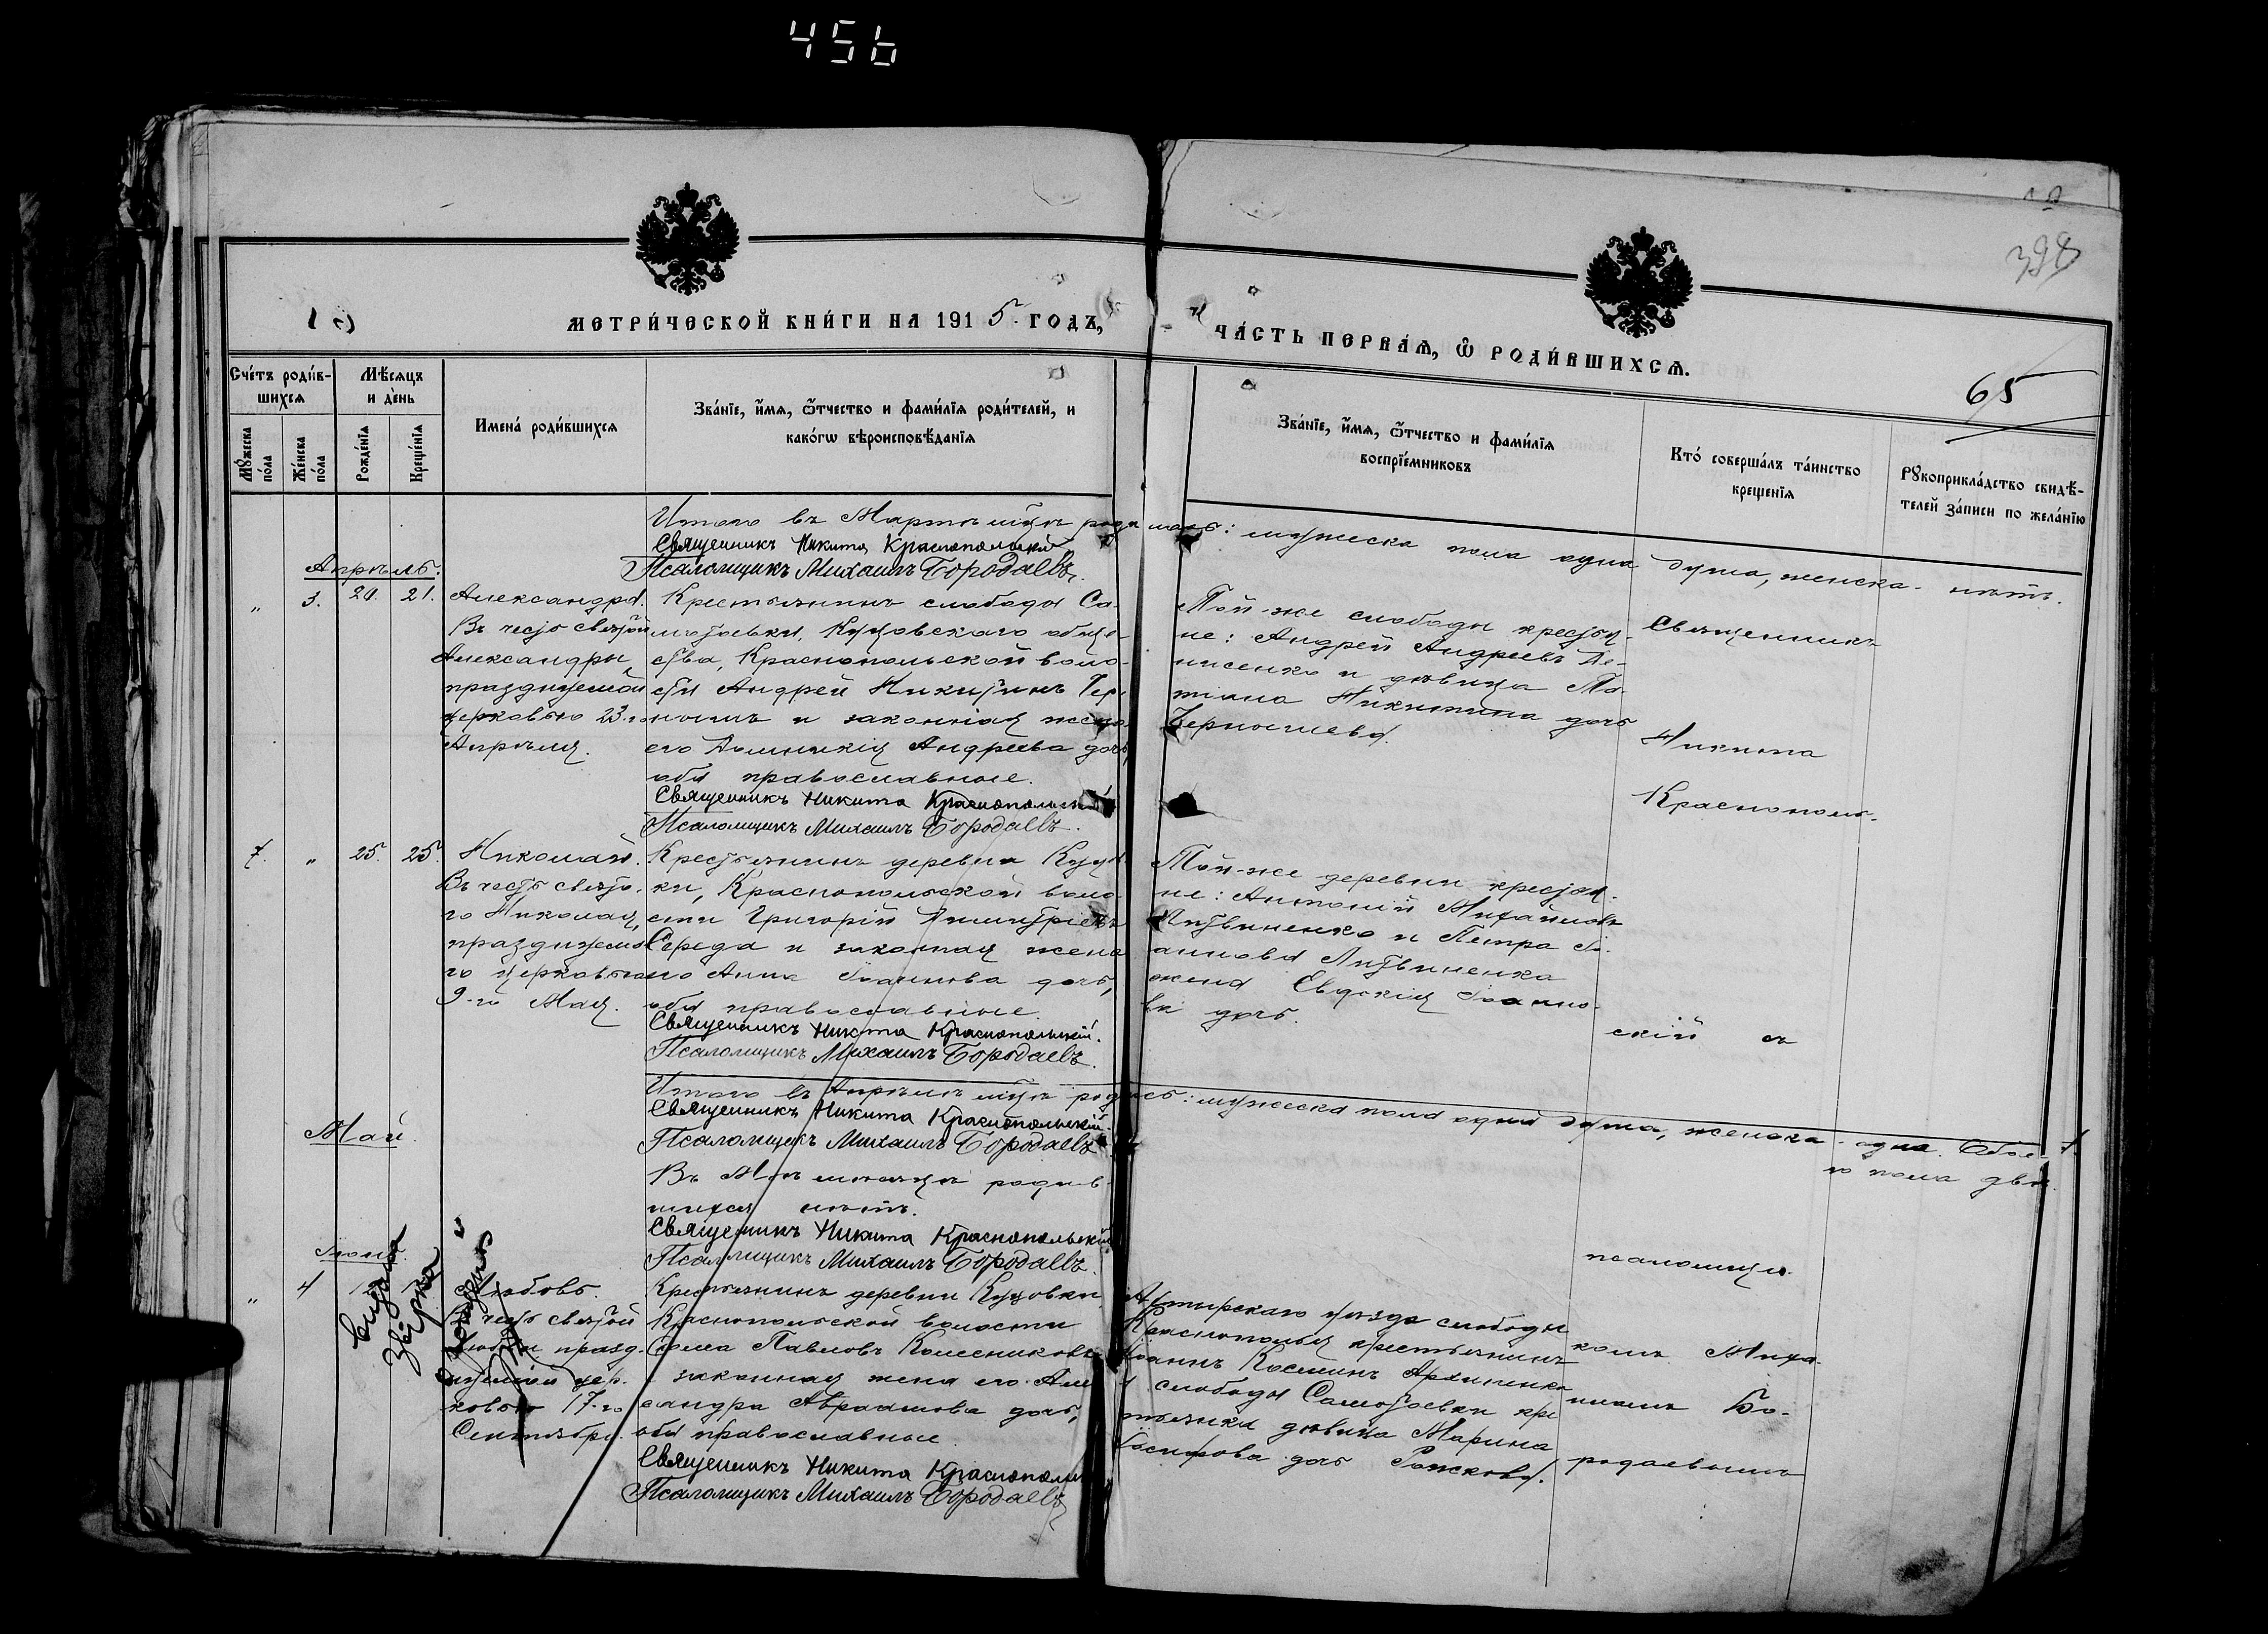 456
398
65
МЕТРИ́ЧЕСКОЙ КНИ́ГИ НА 1915. ГОДЪ,
ЧА́СТЬ ПЕРВАѦ, Ѡ҆ РОДИ́ВШИХСѦ.
Сче́тъ роди́в-
шихсѧ
Мꙋ́жеска по́ла
Же́нска по́ла
Мѣ́сѧцъ
и де́нь
Рожде́нїѧ
Креще́нїѧ
Имена́ роди́вшихсѧ
Зва́нїе, и҆́мѧ, ѻ҆́тчество и фами́лїѧ роди́телей, и
како́гѡ вѣроисповѣ́данїѧ
Зва́нїе, и҆́мѧ, ѻ҆́тчество и фами́лїѧ
воспрїе́мниковъ
Кто́ соверша́лъ та́инство
креще́нїѧ
Рꙋкоприкла́дство свидѣ́-
телей за́писи по жела́нїю
Итого въ Мартѣ мцѣ родилось: мужеска пола одна душа, женска - нѣтъ.
Священникъ Никита Краснопольскій
Псаломщикъ Михаилъ Бородаевъ.
Апрѣль.
" 3. 20. 21.
Александра.
Въ честь святой
Александры,
празднуемой
церковью 23-го
Апрѣля.
Крестьянинъ слободы Са-
мотоевки, Куцовскаго обще-
ства, Краснопольской воло-
сти Андрей Никитинъ Чер-
и законная жена
его Андреева дочь,
оба православные.
Священникъ Никита Краснопольскій
Псаломщикъ Михаилъ Бородаевъ.
Той-же слободы крестья-
не: Андрей Андреевъ Де-
нисенко и дѣвица Та-
тіана Никитина дочь
Священникъ
Никита
Краснополь-
7. " 25. 25.
Николай.
Въ честь свято-
го Николая,
празднуемо-
го церковью
9-го Мая.
Крестьянинъ деревни Куцов-
ки, Краснопольской воло-
сти Григорій Димитріевъ
Середа и законная жена
его Анна Іоаннова дочь,
оба православные.
Священникъ Никита Краснопольскій.
Псаломщикъ Михаилъ Бородаевъ.
Той-же деревни крестья-
не: Антоній Михайловъ
Литвиненко и Петра Іо-
аннова Литвиненка
жена Евдокія Іоанно-
ва дочь.
скій съ
Итого въ Апрѣлѣ мцѣ родилось: мужеска пола одна душа, женска - одна. Обое-
го пола двѣ.
Священникъ Никита Краснопольскій.
Псаломщикъ Михаилъ Бородаевъ
Май.
Въ Маѣ мѣсяцѣ родив-
шихся нѣтъ.
Священникъ Никита Краснопольскій
Псаломщикъ Михаилъ Бородаевъ.
псаломщи-
Іюнь.
" 4 12
Любовь.
Въ честь святой
Любви, празд-
нуемой цер-
ковью 17-го
Сентября.
Крестьянинъ деревни Куцовки
Краснопольской волости
Павловъ Колесниковъ
и законная жена его Алек-
сандра Авраамова дочь,
оба православные.
Священникъ Никита Краснопольскій
Псаломщикъ Михаилъ Бородаевъ
Ахтырскаго уѣзда слободы
Краснополья крестьянинъ
Іоаннъ Косминъ Архипенко
и слободы Самотоевки кре-
стьянка дѣвица Марина
Іосифова дочь
комъ Миха-
иломъ Бо-
родаевымъ